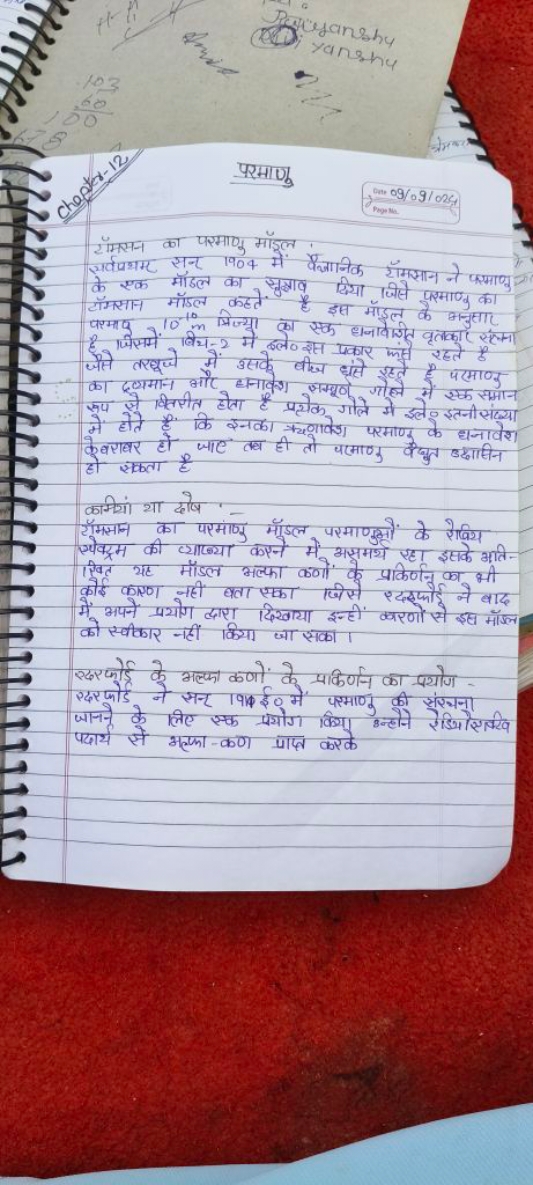 Priyanshu
Yanshu
103
60
100
678
Chapter-12
परमाणु
Date 09/09/024
Page No.
टॉमसन का परमाणु मॉडल :
सर्वप्रथम सन् 1904 में वैज्ञानिक टॉमसान ने परमाणु
के एक मॉडल का सुझाव दिया जिसे परमाणु का
टॉमसान मॉडल कहते है इस मॉडल के अनुसार
परमाणु 10⁻¹⁰m त्रिज्या का एक धनावेशित वृतकार
है जिसमें बिच-2 में इले० इस प्रकार रहते है
जैसे तरबूजे में उसके बीज धुसे रहते है परमाणु
का द्रणमान और धनावेश सम्पूर्ण गोले में एक समान
रूप से वितरीत होता है प्रत्येक गोले में इले० इतनी संख्या
में होते है कि इनका ऋणावेश परमाणु के धनावेश
के बराबर हो जाए तब ही तो परमाणु वैधुत उदासिन
हो सकता है
कमियां या दोष :-
टॉमसान का परमाणु मॉडल परमाणुओं के रेखिय
स्पेक्ट्रम की व्याख्या करने में असमर्थ रहा इसके अति-
रिक्त यह मॉडल अल्फा कणों के प्राकिर्णन का भी
कोई कारण नही बता सका जिसे रदरफोर्ड ने बाद
में अपने प्रयोग द्वारा दिखाया इन्हीं कारणों से इस मॉडल
को स्वीकार नहीं किया जा सका।
रदरफोर्ड के अल्फा कणों के प्राकिर्णन का प्रयोग -
रदरफोर्ड ने सन् 1911 ई० में परमाणु की संरचना
जानने के लिए एक प्रयोग किया उन्होने रेडियोएक्टिव
पदार्थ से अल्फा-कण प्राप्त करके